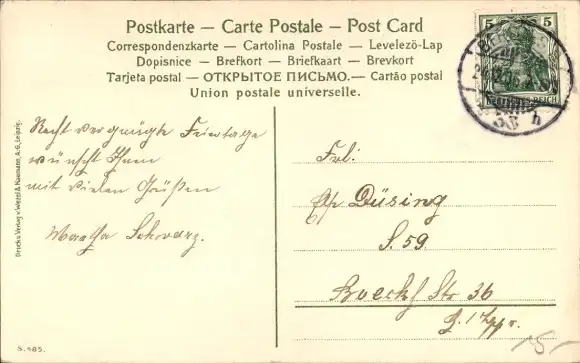 Postkarte — Carte Postale — Post Card
Correspondenzkarte — Cartolina Postale — Levelezö-Lap
Dopisnice — Brefkort — Briefkaart — Brevkort
Tarjeta postal — ОТКРЫТОЕ ПИСЬМО. — Cartão postal
Union postale universelle.
5 5
REICH
Recht vergnügte Feiertage
wünscht Ihnen
mit vielen Grüßen
Martha Schwarz.
Druck u. Verlag v. Wezel & Naumann, A.-G., Leipzig.
S. 485.
Frl.
Düsing
S. 59.
Boeckh Str 36
15.-